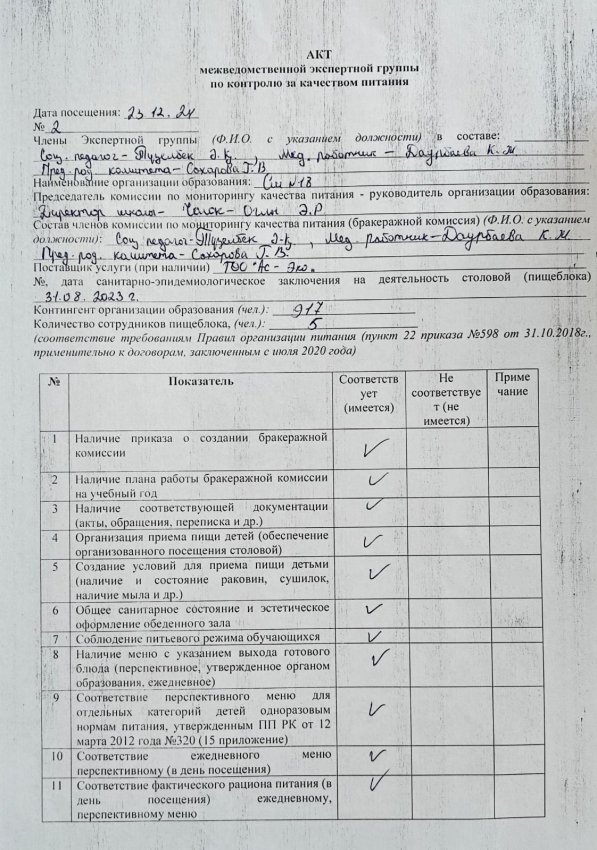 АКТ
межведомственной экспертной группы
по контролю за качеством питания
Дата посещения: 23 12. 24
№ 2
Члены Экспертной группы (Ф.И.О. с указанием должности) в составе:
Соц. педагог - Тузелбек Э.Қ., Мед. работник - Даурбаева К.М
Пред. род. комитета - Сохарова Г.В
Наименование организации образования: Сш №18
Председатель комиссии по мониторингу качества питания - руководитель организации образования:
Директор школы - Чолок - Оглы Э.Р
Состав членов комиссии по мониторингу качества питания (бракеражной комиссии) (Ф.И.О. с указанием
должности): Соц. педагог - Тузелбек Э-Қ, Мед. работник - Даурбаева К.М
Пред. род. комитета - Сохорова Г.В.
Поставщик услуги (при наличии) ТОО "Ас - Эко.
№, дата санитарно-эпидемиологические заключения на деятельность столовой (пищеблока)
31.08.2023 г.
Контингент организации образования (чел.): 917
Количество сотрудников пищеблока, (чел.): 5
(соответствие требованиям Правил организации питания (пункт 22 приказа №598 от 31.10.2018г.,
применительно к договорам, заключенным с июля 2020 года)
№ Показатель Соответств Не Приме
ует соответствуе чание
(имеется) т (не
имеется)
1 Наличие приказа о создании бракеражной ✓
комиссии
2 Наличие плана работы бракеражной комиссии ✓
на учебный год
3 Наличие соответствующей документации ✓
(акты, обращения, переписка и др.)
4 Организация приема пищи детей (обеспечение ✓
организованного посещения столовой)
5 Создание условий для приема пищи детьми ✓
(наличие и состояние раковин, сушилок,
наличие мыла и др.)
6 Общее санитарное состояние и эстетическое ✓
оформление обеденного зала
7 Соблюдение питьевого режима обучающихся ✓
8 Наличие меню с указанием выхода готового ✓
блюда (перспективное, утвержденное органом
образования, ежедневное)
9 Соответствие перспективного меню для ✓
отдельных категорий детей одноразовым
нормам питания, утвержденным ПП РК от 12
марта 2012 года №320 (15 приложение)
10 Соответствие ежедневного меню ✓
перспективному (в день посещения)
11 Соответствие фактического рациона питания (в ✓
день посещения) ежедневному,
перспективному меню